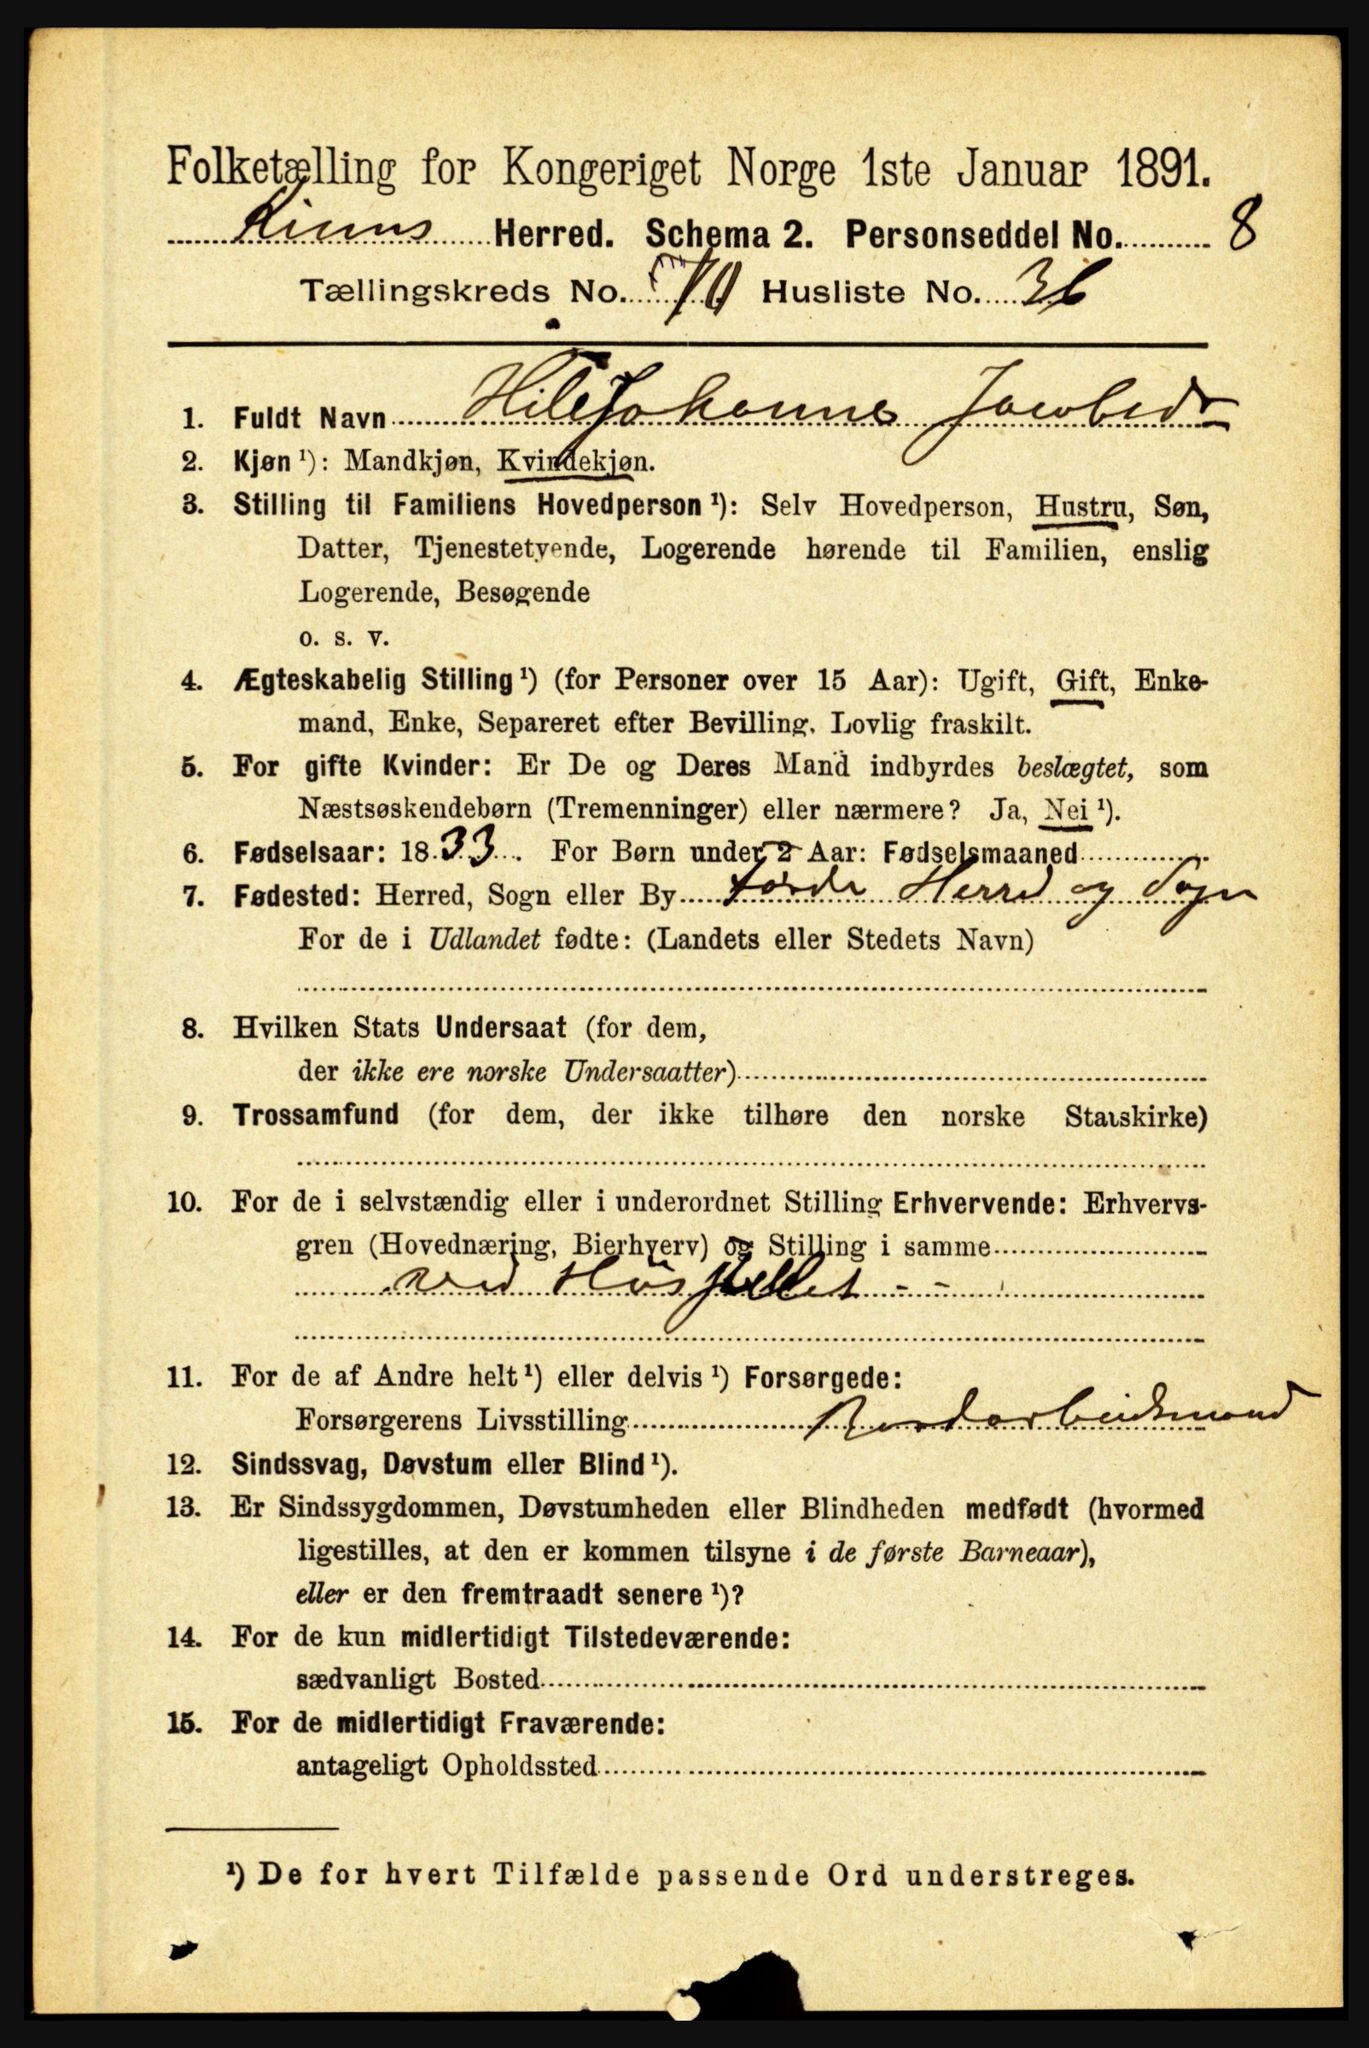 Folketælling for Kongeriget Norge 1ste Januar 1891.
Kinns Herred. Schema 2. Personseddel No. 8
Tællingskreds No. 10 Husliste No. 36
1. Fuldt Navn Johanne Jacobsdr
2. Kjøn ¹): Mandkjøn, Kvindekjøn.
3. Stilling til Familiens Hovedperson ¹): Selv Hovedperson, Hustru, Søn,
Datter, Tjenestetyende, Logerende hørende til Familien, enslig
Logerende, Besøgende
o. s. v.
4. Ægteskabelig Stilling ¹) (for Personer over 15 Aar): Ugift, Gift, Enke-
mand, Enke, Separeret efter Bevilling, Lovlig fraskilt.
5. For gifte Kvinder: Er De og Deres Mand indbyrdes beslægtet, som
Næstsøskendebørn (Tremenninger) eller nærmere? Ja, Nei ¹).
6. Fødselsaar: 1833. For Børn under 2 Aar: Fødselsmaaned
7. Fødested: Herred, Sogn eller By Førde Herred og Sogn
For de i Udlandet fødte: (Landets eller Stedets Navn)
8. Hvilken Stats Undersaat (for dem,
der ikke ere norske Undersaatter)
9. Trossamfund (for dem, der ikke tilhøre den norske Statskirke)
10. For de i selvstændig eller i underordnet Stilling Erhvervende: Erhvervs-
gren (Hovednæring, Bierhverv) og Stilling i samme
ved Husstellet - -
11. For de af Andre helt ¹) eller delvis ¹) Forsørgede:
Forsørgerens Livsstilling Jordarbeidsmand
12. Sindssvag, Døvstum eller Blind ¹).
13. Er Sindssygdommen, Døvstumheden eller Blindheden medfødt (hvormed
ligestilles, at den er kommen tilsyne i de første Barneaar),
eller er den fremtraadt senere ¹)?
14. For de kun midlertidigt Tilstedeværende:
sædvanligt Bosted
15. For de midlertidigt Fraværende:
antageligt Opholdssted
¹) De for hvert Tilfælde passende Ord understreges.